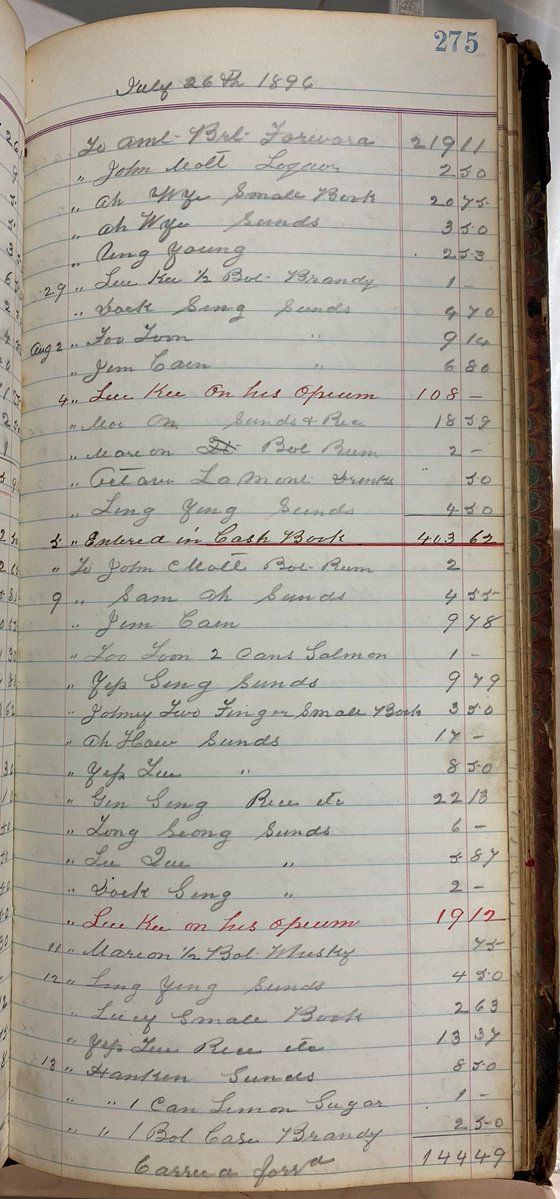 275
July 26th 1896
To amt Brt Forward 219 11
" John Mott Liquor 2 50
" Ah Wye Small Book 20 75
" Ah Wye Sunds 3 50
" Ung Young 2 53
29 " Lee Kee 1/2 Bol. Brandy 1 -
" Dock Sing Sunds 4 70
Aug 2 " Foo Loon " 9 14
" Jim Cain " 6 80
4 " Lee Kee On his Opium 108 -
" Moi On Sunds & Rice 18 59
" Marion Bol Rum 2 -
" Octave LaMont Drinks 50
" Ling Ying Sunds 4 50
5 " Entered in Cash Book 403 62
" To John Mott Bol. Rum 2
9 " Sam Ah Sunds 4 55
" Jim Cain 9 78
" Foo Loon 2 Cans Salmon 1 -
" Yep Sing Sunds 9 79
" Johney Two Finger Small Book 3 50
" Ah How Sunds 17 -
" Yep Lee " 8 50
" Gin Sing Rice etc 22 13
" Long Seong Sunds 6 -
" Lee Que " 5 87
" Dock Sing " 2 -
" Lee Kee on his Opium 19 12
11 " Marion 1/2 Bol Whisky 75
12 " Ling Ying Sunds 4 50
" Lucy Small Book 2 63
" Yep Lee Rice etc 13 37
13 " Hanken Sunds 8 50
" " 1 Can Lemon Sugar 1 -
" " 1 Bol Case Brandy 2 50
Carried forrd 144 49